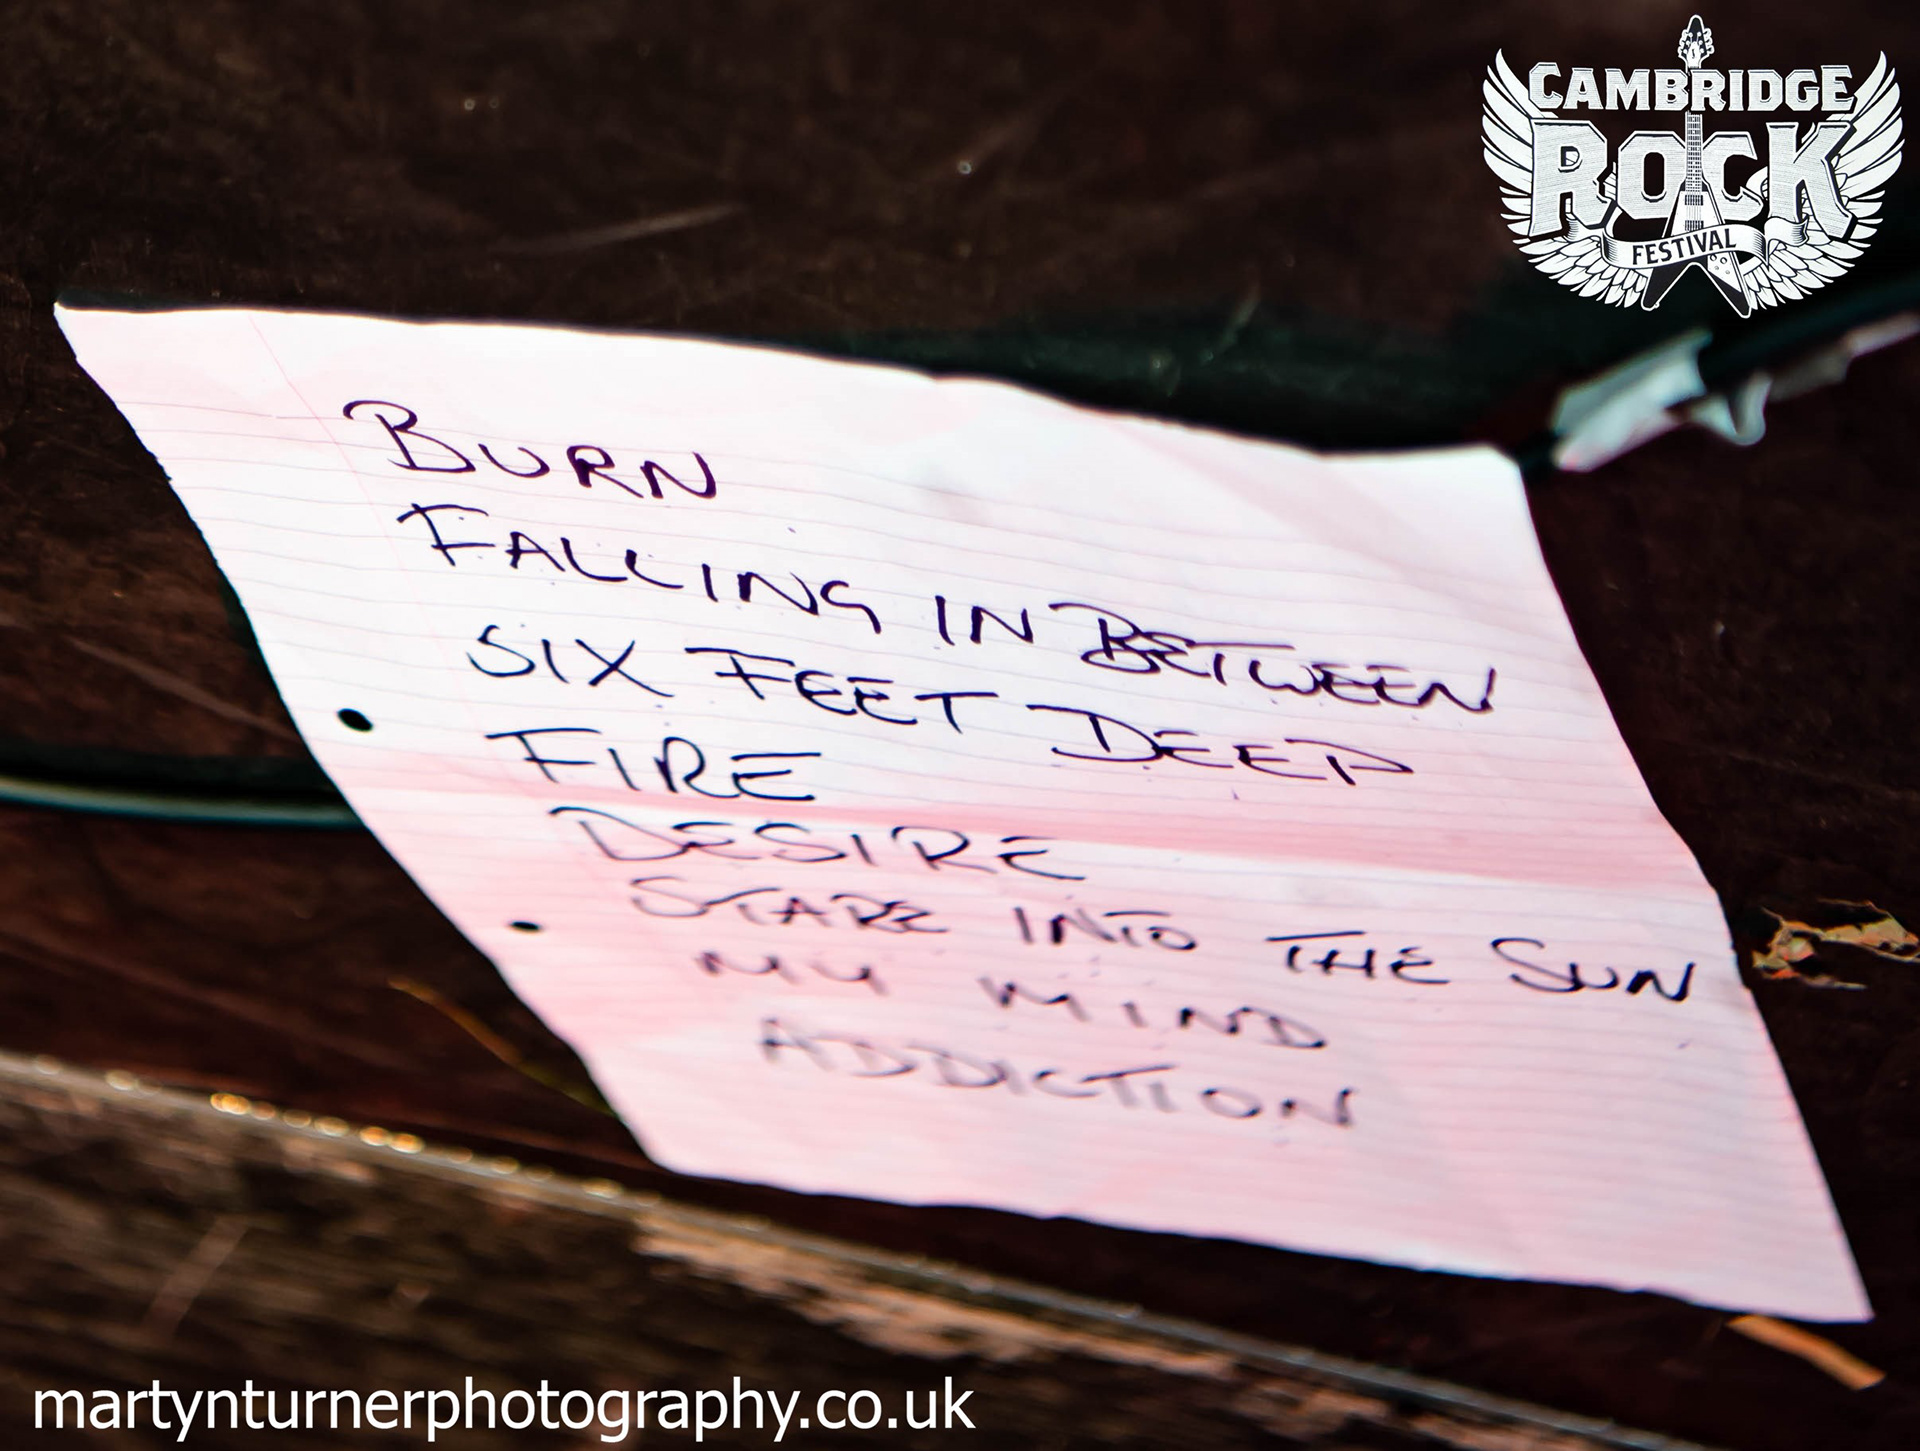 CAMBRIDGE
ROCK
FESTIVAL
BURN
FALLING IN BETWEEN
SIX FEET DEEP
FIRE
DESIRE
STARE INTO THE SUN
MY MIND
ADDICTION
martynturnerphotography.co.uk